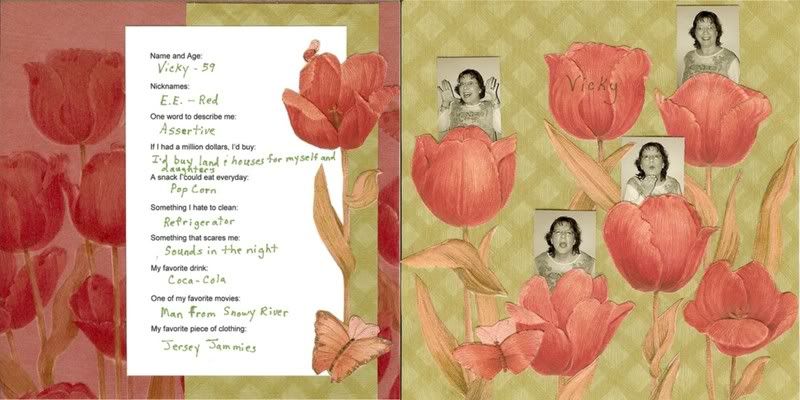 Name and Age:
Vicky - 59
Nicknames:
E.E. - Red
One word to describe me:
Assertive
If I had a million dollars, I'd buy:
I'd buy land & houses for myself and
daughters
A snack I could eat everyday:
Pop Corn
Something I hate to clean:
Refrigerator
Something that scares me:
Sounds in the night
My favorite drink:
Coca-Cola
One of my favorite movies:
Man from Snowy River
My favorite piece of clothing:
Jersey Jammies
Vicky